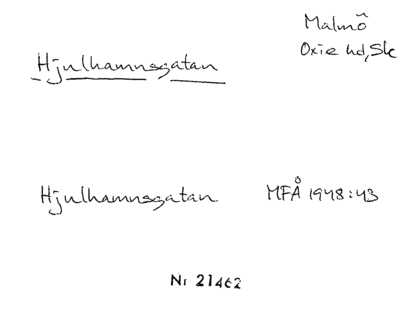 Malmö
Oxie hd, Sk
Hjulhamnsgatan
Hjulhamnsgatan MFÅ 1948:43
Nr 21462